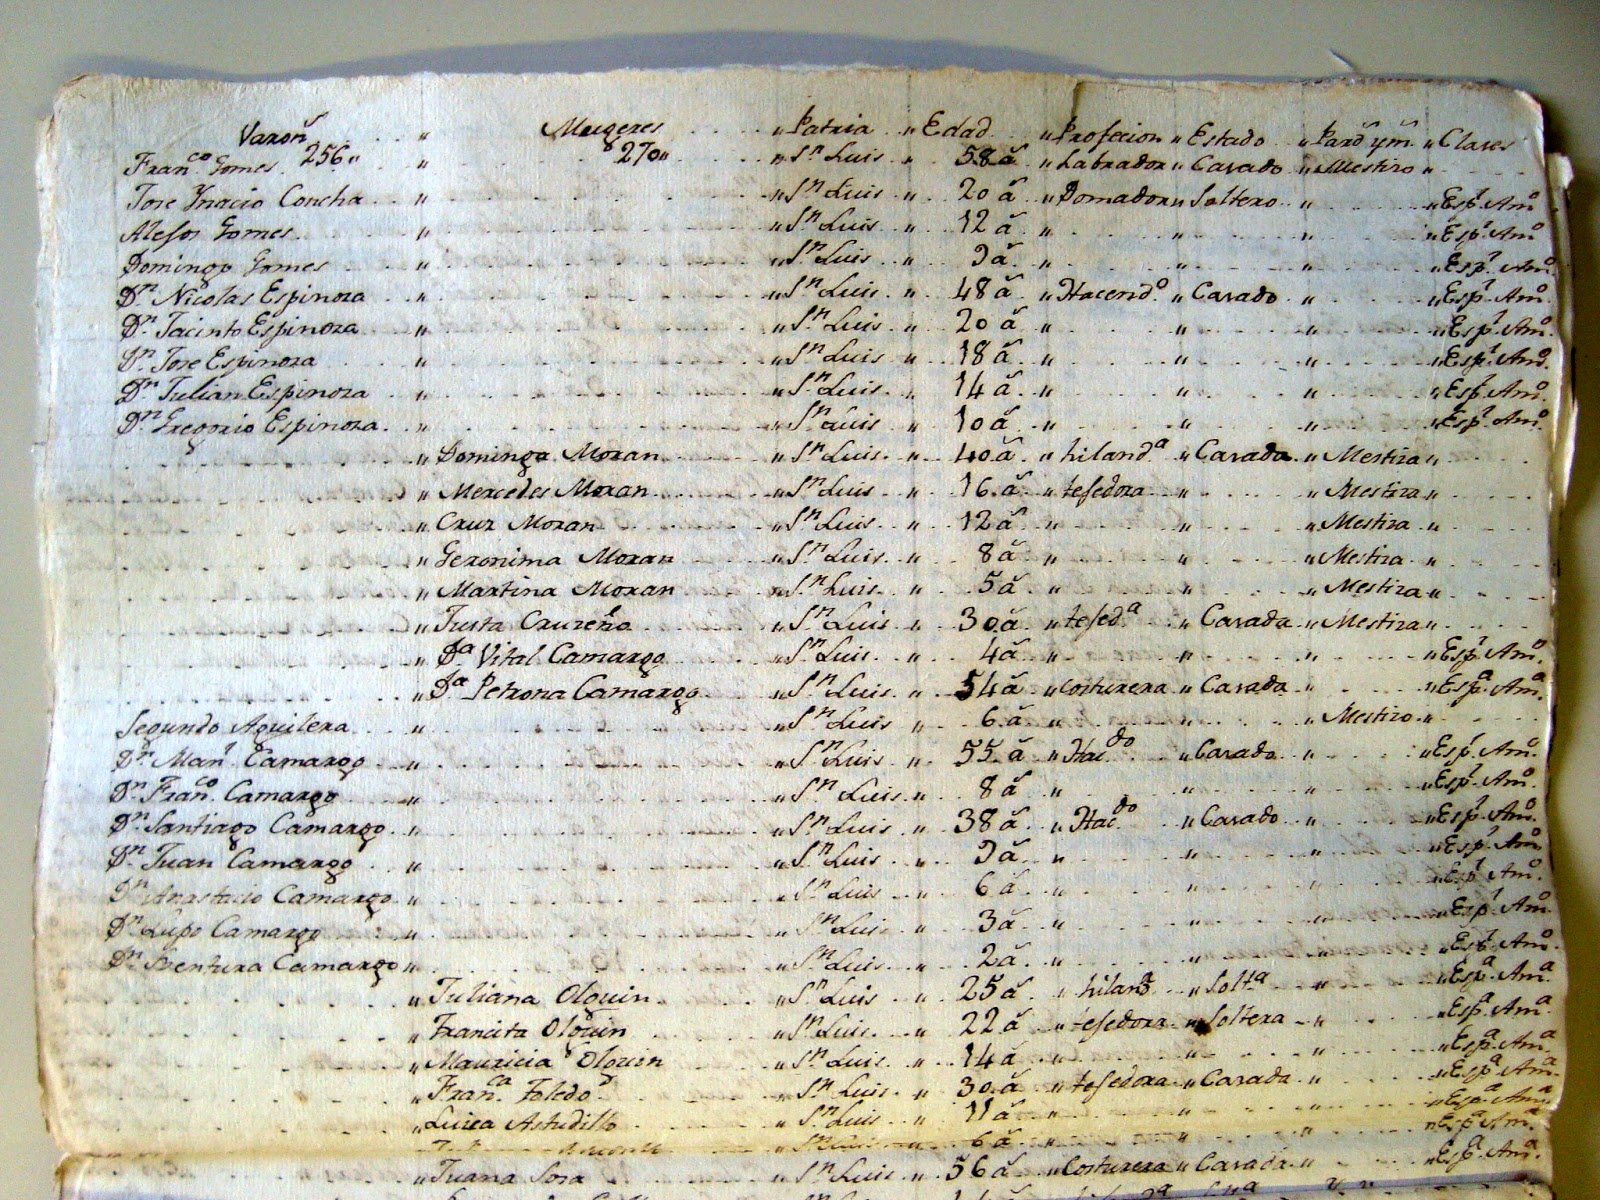 Varon^s " Mugeres " Patria " Edad " Profecion " Estado " Pard^s y m^s " Clases
Fran^co Gomes 256 " " 270 " " S^n Luis " 58 a^s " Labrador " Casado " Mestizo "
Jose Ynacio Concha " " S^n Luis " 20 a^s " Domador " Soltero " " Esp^l Am^o
Gomes " " S^n Luis " 12 a^s " " " " Esp^l Am^o
Domingo Gomes " " S^n Luis " 9 a^s " " " " Esp^l Am^o
D^n Nicolas Espinosa " " S^n Luis " 48 a^s " Hacend^o " Casado " " Esp^l Am^o
D^n Jacinto Espinoza " " S^n Luis " 20 a^s " " " " Esp^l Am^o
D^n Jose Espinosa " " S^n Luis " 18 a^s " " " " Esp^l Am^o
D^n Julian Espinosa " " S^n Luis " 14 a^s " " " " Esp^l Am^o
D^n Gregorio Espinosa " " S^n Luis " 10 a^s " " " " Esp^l Am^o
" Dominga Moran " S^n Luis " 40 a^s " hiland^a " Casada " Mestiza "
" Mercedes Moran " S^n Luis " 16 a^s " tesedora " " Mestiza "
" Cruz Moran " S^n Luis " 12 a^s " " " Mestiza "
" Geronima Moran " S^n Luis " 8 a^s " " " Mestiza "
" Martina Moran " S^n Luis " 5 a^s " " " Mestiza "
" Justa Cruzeño " S^n Luis " 30 a^s " tesed^a " Casada " Mestiza "
" D^a Vital Camargo " S^n Luis " 4 a^s " " " " Esp^l Am^a
" D^a Petrona Camargo " S^n Luis " 54 a^s " Costurera " Casada " " Esp^a Am^a
Segundo Aguilera " " S^n Luis " 6 a^s " " " Mestizo "
D^n Man^l Camargo " " S^n Luis " 55 a^s " Hac^do " Casado " " Esp^l Am^o
D^n Fran^co Camargo " " S^n Luis " 8 a^s " " " " Esp^l Am^o
D^n Santiago Camargo " " S^n Luis " 38 a^s " Hac^do " Casado " " Esp^l Am^o
D^n Juan Camargo " " S^n Luis " 9 a^s " " " " Esp^l Am^o
D^n Anastacio Camargo " " S^n Luis " 6 a^s " " " " Esp^l Am^o
D^n Lupo Camargo " " S^n Luis " 3 a^s " " " " Esp^l Am^o
D^n Bentura Camargo " " S^n Luis " 2 a^s " " " " Esp^l Am^o
" Juliana Olguin " S^n Luis " 25 a^s " hiland^a " Solt^a " " Esp^a Am^a
" Francisca Olguin " S^n Luis " 22 a^s " tesedora " Soltera " " Esp^a Am^a
" Mauricia Olguin " S^n Luis " 14 a^s " " " " Esp^a Am^a
" Fran^ca Toledo " S^n Luis " 30 a^s " tesedora " Casada " " Esp^a Am^a
" Luisa Astudillo " S^n Luis " 11 a^s " " " " Esp^a Am^a
S^n Luis " 6 a^s " " " " Esp^a Am^a
" Juana Sosa " S^n Luis " 56 a^s " Costurera " Casada " " Esp^a Am^a